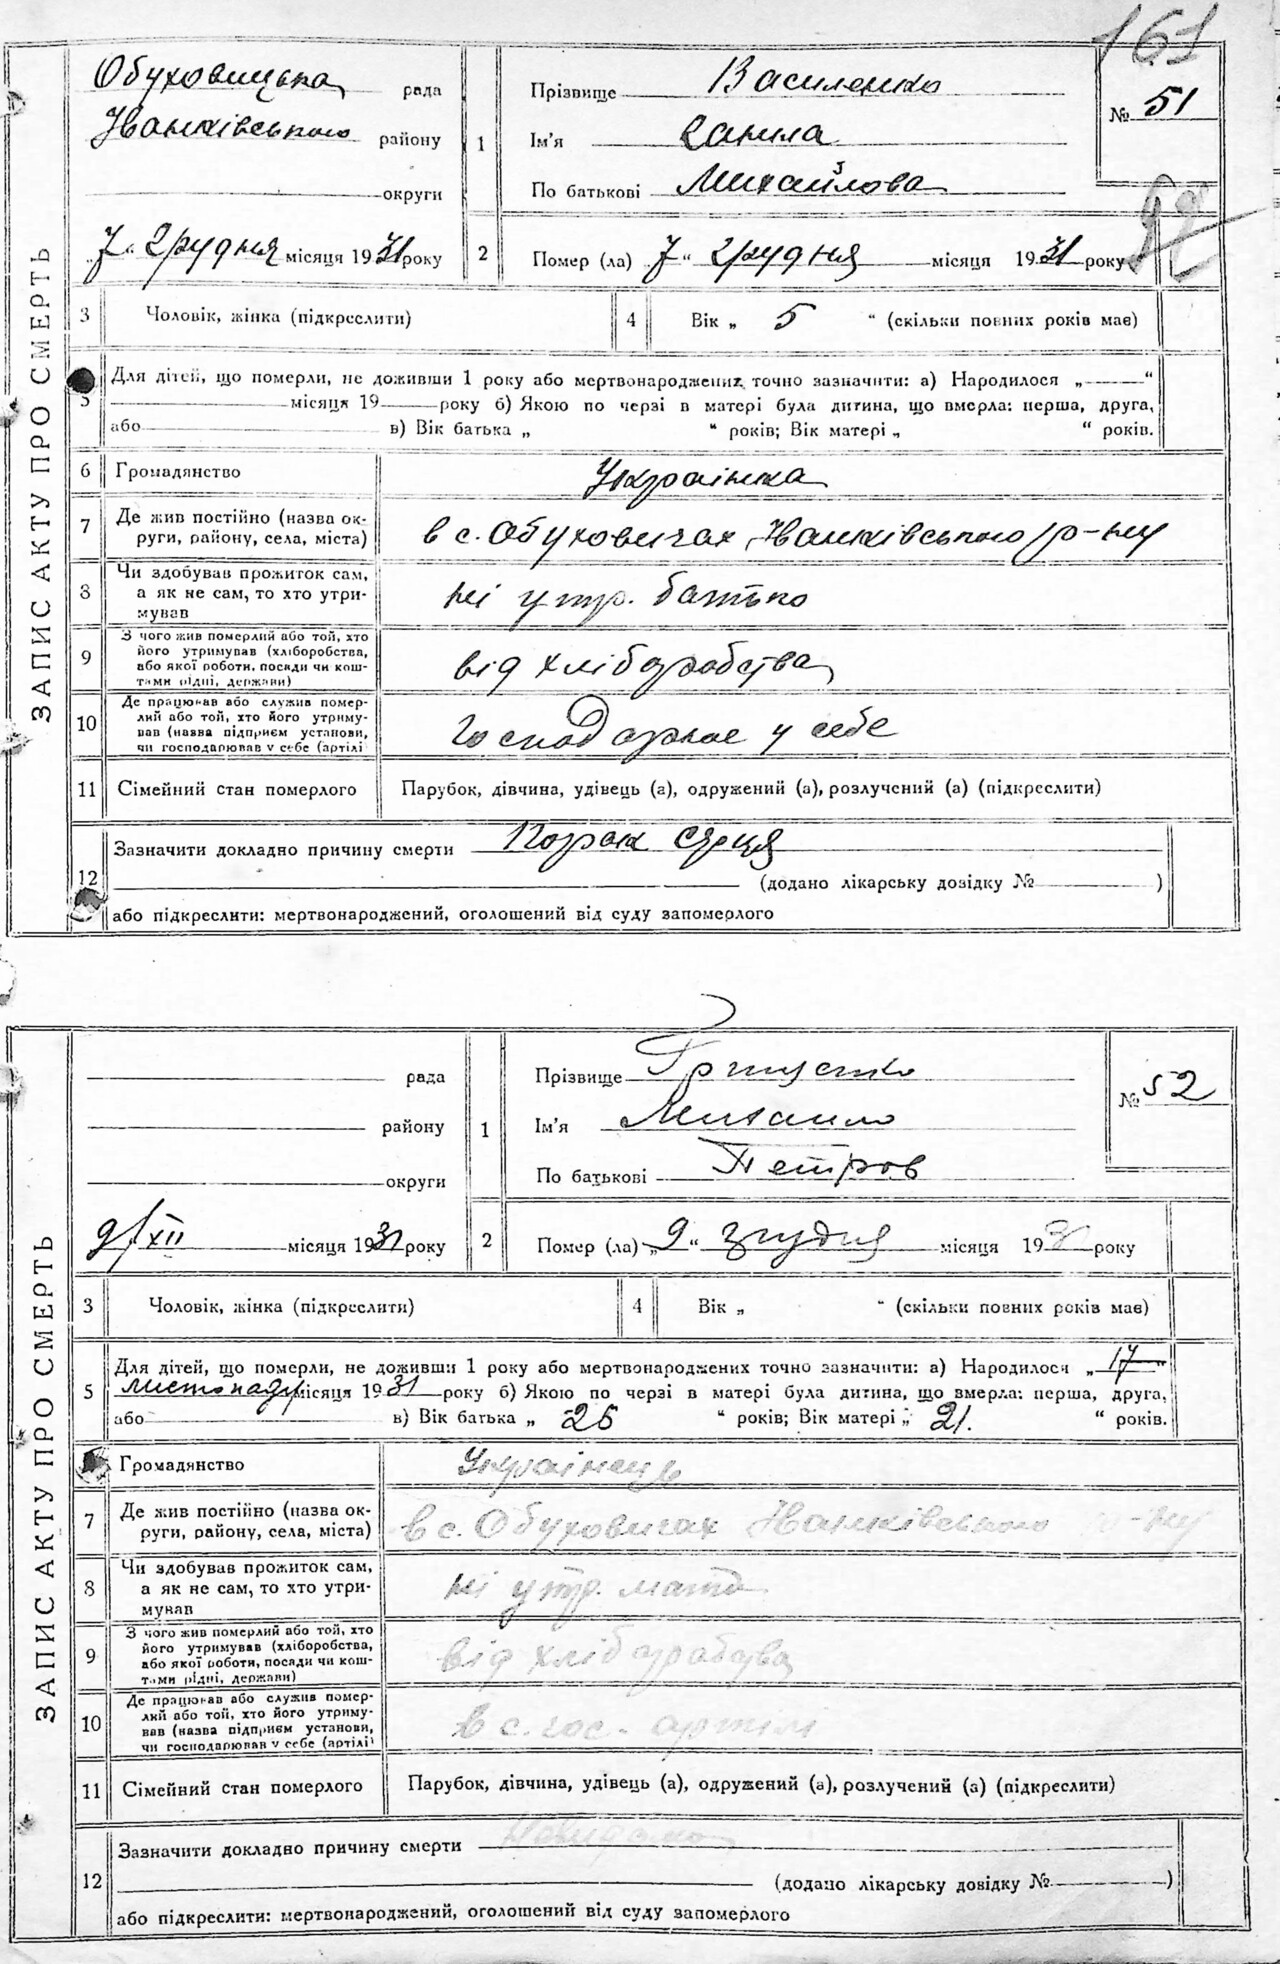 161
ЗАПИС АКТУ ПРО СМЕРТЬ
Обуховицька рада
Іванківського району
округи
„7“ грудня місяця 1931 року
1 Прізвище Василенко
Ім'я Ганна
По батькові Михайлова
№ 51
2 Помер (ла) 7“ грудня місяця 1931 року
3 Чоловік, жінка (підкреслити) 4 Вік „ 5 “ (скільки повних років має)
5 Для дітей, що померли, не доживши 1 року або мертвонароджених точно зазначити: а) Народилося „ “
місяця 19 року б) Якою по черзі в матері була дитина, що вмерла: перша, друга,
або в) Вік батька „ “ років; Вік матері „ “ років.
6 Громадянство Українка
7 Де жив постійно (назва ок-
руги, району, села, міста) в с. Обуховичах, Іванківського р-ну
8 Чи здобував прожиток сам,
а як не сам, то хто утри-
мував ні утр. батько
9 З чого жив померлий або той, хто
його утримував (хліборобства,
або якої роботи, посади чи кош-
тами рідні, держави) від хліборобства
10 Де працював або служив помер-
лий або той, хто його утриму-
вав (назва підприєм установи,
чи господарював у себе (артілі Господарює у себе
11 Сімейний стан померлого Парубок, дівчина, удівець (а), одружений (а), розлучений (а) (підкреслити)
12 Зазначити докладно причину смерти Порок серця
(додано лікарську довідку № )
або підкреслити: мертвонароджений, оголошений від суду запомерлого
ЗАПИС АКТУ ПРО СМЕРТЬ
рада
району
округи
9/XII місяця 1931 року
1 Прізвище Грищенко
Ім'я Михаило
По батькові Петров
№ 52
2 Помер (ла) „9“ грудня місяця 1931 року
3 Чоловік, жінка (підкреслити) 4 Вік „ “ (скільки повних років має)
5 Для дітей, що померли, не доживши 1 року або мертвонароджених точно зазначити: а) Народилося „17“
листопаду місяця 1931 року б) Якою по черзі в матері була дитина, що вмерла: перша, друга,
або в) Вік батька „ 25 “ років; Вік матері „ 21. “ років.
Громадянство Українець
7 Де жив постійно (назва ок-
руги, району, села, міста) в с. Обуховичах Іванківського р-ну
8 Чи здобував прожиток сам,
а як не сам, то хто утри-
мував ні утр. мати
9 З чого жив померлий або той, хто
його утримував (хліборобства,
або якої роботи, посади чи кош-
тами рідні, держави) від хліборобства
10 Де працював або служив помер-
лий або той, хто його утриму-
вав (назва підприєм установи,
чи господарював у себе (артілі) в с. гос. артілі
11 Сімейний стан померлого Парубок, дівчина, удівець (а), одружений (а), розлучений (а) (підкреслити)
12 Зазначити докладно причину смерти
(додано лікарську довідку № )
або підкреслити: мертвонароджений, оголошений від суду запомерлого